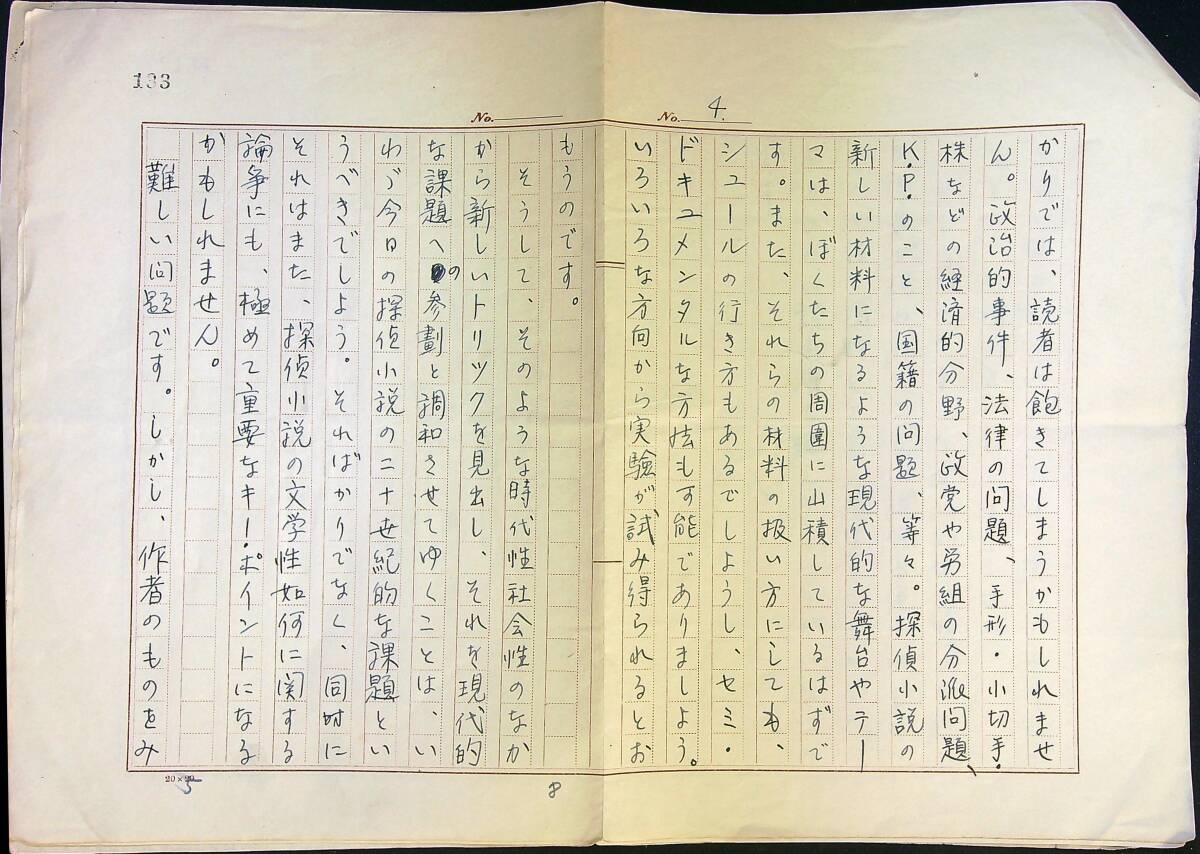 133
No.
No. 4.
かりでは、読者は飽きてしまうかもしれませ
ん。政治的事件、法律の問題、手形・小切手・
株などの経済的分野、政党や労組の分派問題、
K.P.のこと、国籍の問題、等々。探偵小説の
新しい材料になるような現代的な舞台やテー
マは、ぼくたちの周囲に山積しているはずで
す。また、それらの材料の扱い方にしても、
シュールの行き方もあるでしょうし、セミ・
ドキュメンタルな方法も可能でありましょう。
いろいろな方向から実験が試み得られるとお
もうのです。
そうして、そのような時代性社会性のなか
から新しいトリックを見出し、それを現代的
な課題への参劃と調和させてゆくことは、い
わゞ今日の探偵小説の二十世紀的な課題とい
うべきでしよう。そればかりでなく、同時に
それはまた、探偵小説の文学性如何に関する
論争にも、極めて重要なキー・ポイントになる
かもしれません。
難しい問題です。しかし、作者のものをみ
20×20
5
8